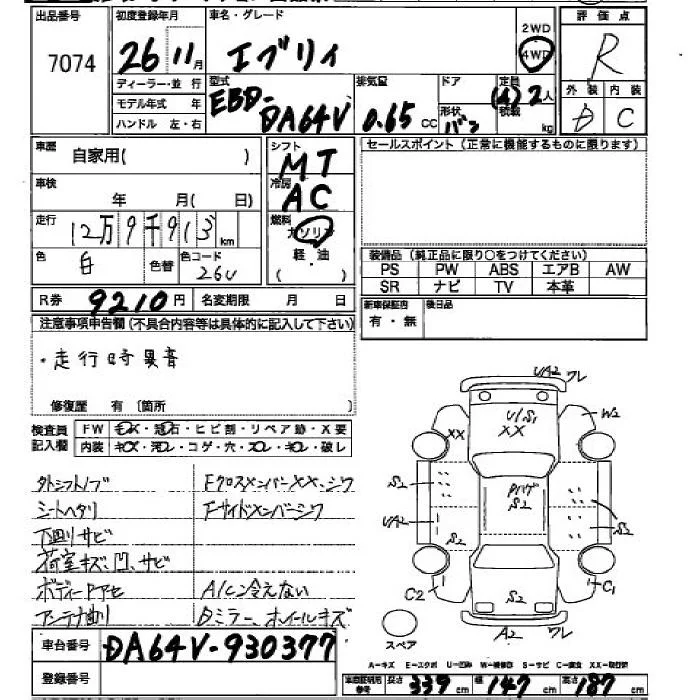 出品番号
7074
初度登録年月
26年11月
車名・グレード
エブリィ
2WD
4WD
評価点
R
ディーラー・並行
モデル年式 年
ハンドル 左・右
型式
EBD-DA64V
排気量
0.65 CC
ドア
形状
バン
定員
(4) 2人
積載
kg
外装 内装
D C
車歴
自家用( )
車検
年 月( 日)
走行
12万9千913km
色
白
色替
色コード
26U
シフト
MT
冷房
AC
燃料
ガソリン
軽・油
( )
セールスポイント(正常に機能するものに限ります)
装備品(純正品に限り○をつけてください)
PS PW ABS エアB AW
SR ナビ TV 本革
R券 9210円
名変期限 月 日
新車保証書
有・無
後日品
注意事項申告欄(不具合内容等は具体的に記入して下さい)
・走行時異音
修復歴 有〔箇所
検査員記入欄
FW キズ・飛石・ヒビ割・リペア跡・X要
内装 キズ・汚レ・コゲ・穴・スレ・キレ・破レ
外シフトノブ
シートヘタリ
下回りサビ
荷室キズ、凹、サビ
ボディーPアセ
アンテナ曲り
FクロスメンバーXX、シワ
Fサイドメンバーシワ
A/C冷えない
Dミラー、ホイールキズ
UA2 ワレ
U/S1
XX
XX
W2
S2
UA2
S2
Pハゲ
S2
S2
C2
S2
C1
A2 ワレ
スペア
A-キズ E-エクボ U-凹み W-補修跡 S-サビ C-腐食 XX-取替済
車台番号
DA64V-930377
登録番号
車庫証明用参考
長さ 339cm
幅 147cm
高さ 187cm